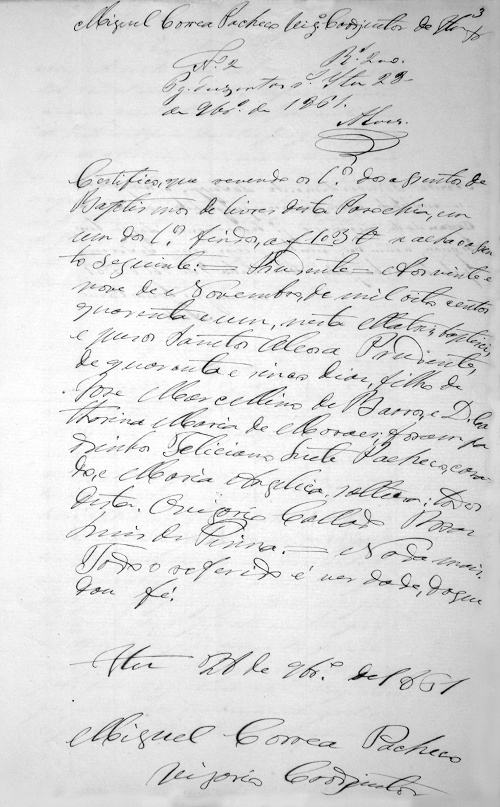 3
Miguel Correa Pacheco Vigº Coadjutor de Itu
Nº 2 Rs 200
Pg. duzentos rs. Itu 28
de 9brº de 1861.
Alves.
Certifico, que revendo os Lºs dos assentos de
Baptismos de livres desta Parochia, em
um dos Lºs findos, a f 103 se acha o assen
to seguinte: = Prudente = Aos vinte e
nove de Novembro, de mil oito centos
quarenta e um, nesta Matriz baptisei,
e puz os Santos Oleos a Prudente,
de quarenta e cinco dias, filho de
José Marcellino de Barros, e D. Ca
tharina Maria de Moraes; foram pa
drinhos Feliciano Leite Pacheco, casa
do, e Maria Angelica, solteira; todos
desta. O Vigario Collado Braz
Luis de Pinna. = Nada mais.
Todo o referido é verdade, do que
dou fé.
Itu 28 de 9brº de 1861
Miguel Correa Pacheco
Vigario Coadjutor